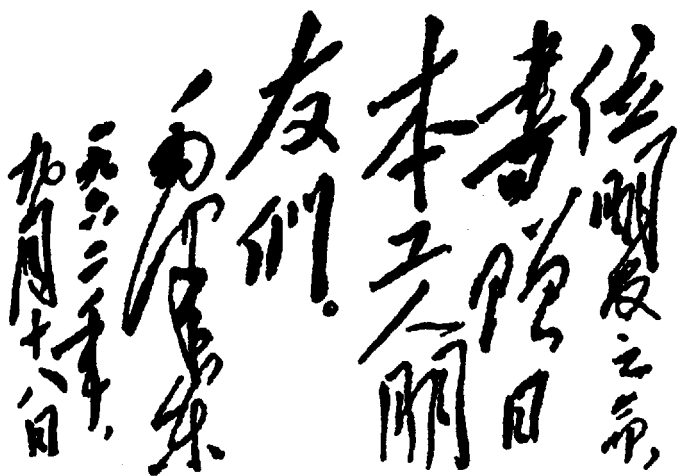 位朋友之命,
書贈日
本工人朋
友們。
毛澤東
一九六二年,
九月十八日